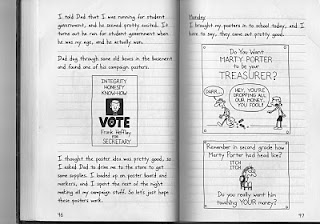 I told Dad that I was running for student
government, and he seemed pretty excited. It
turns out he ran for student government when
he was my age, and he actually won.
Dad dug through some old boxes in the basement
and found one of his campaign posters.
INTEGRITY
HONESTY
KNOW-HOW
VOTE
Frank Heffley
FOR
SECRETARY
I thought the poster idea was pretty good, so
I asked Dad to drive me to the store to get
some supplies. I loaded up on poster board and
markers, and I spent the rest of the night
making all my campaign stuff. So let's just hope
these posters work.
46
Monday
I brought my posters in to school today, and I
have to say, they came out pretty good.
Do You Want
MARTY PORTER
to be your
TREASURER?
DURR...
HEY, YOU'RE
DROPPING ALL
OUR MONEY,
YOU FOOL!
Remember in second grade how
Marty Porter had head lice?
ITCH
ITCH
Do you really want him
touching YOUR money?
47